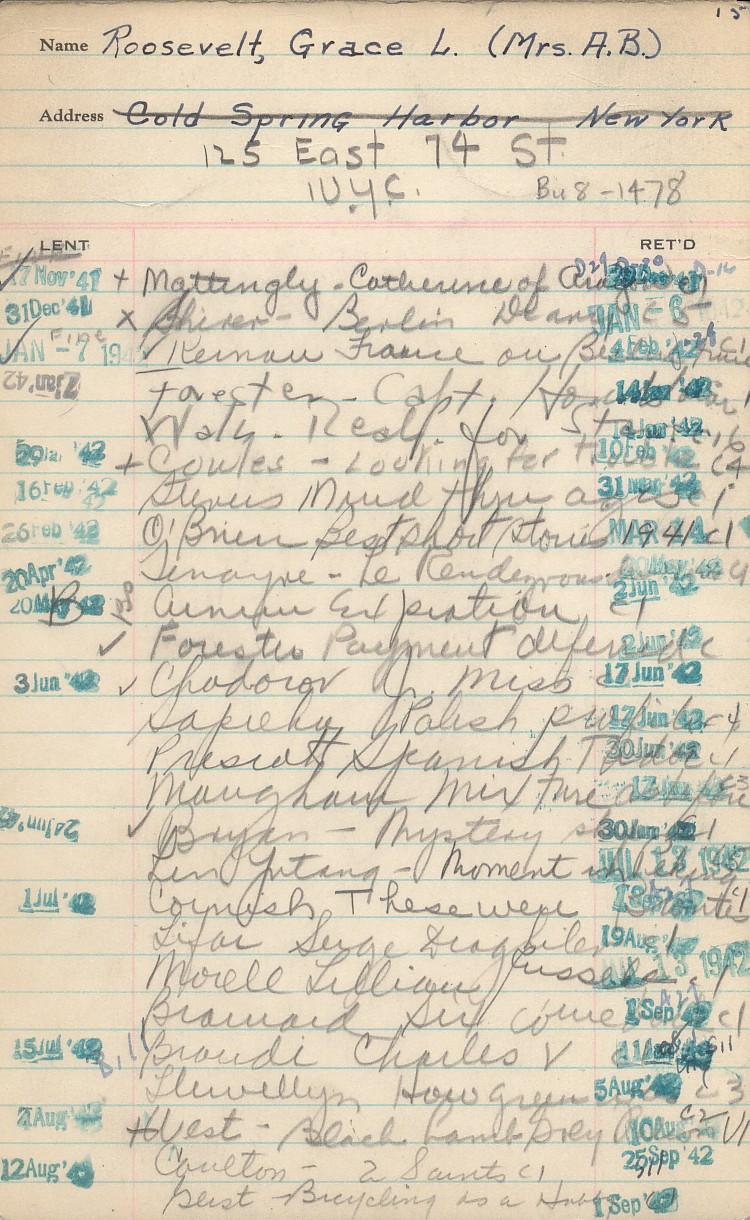 15
Name Roosevelt, Grace L. (Mrs. A.B.)
Address Cold Spring Harbor New York
125 East 74 St.
N.Y.C. Bu 8-1478
LENT RET'D
17 Nov '41 + Mattingly - Catherine of Aragon
31 Dec '41 x Shirer - Berlin Diary JAN -6
JAN -7 194 Fine Kernan France on Berlin Time 4 Feb '42 c1
7 Jan '42 Forester - Capt. Horatio 14 Jan '42
Waln - Reach for Stars Jan '42
29 Jan '42 + Cowles - Looking for Trouble 10 Feb '42 c4
16 Feb '42 Stevens 31 Mar '42
26 Feb '42 O'Brien Best Short Stories 1941 c1
20 Apr '42 - Le Rendezvous May '42
20 May '42 B Expiation c1 2 Jun '42
✓ Forester Payment deferred c 2 Jun '42
3 Jun '42 ✓ Chodorov J. Miss 17 Jun '42
Sapieha Polish 17 Jun '42 c4
Prescott Spanish Tudor c1 30 Jun '42
Maugham Mixture 17 Jun c3
24 Jun '42 ✓ Bryan - Mystery 30 Jun '42 c1
Lin Yutang - Moment in Peking JUL 13 1942
1 Jul '42 Cornish These were Brontes c1
Lifar Serge Diaghilev c1 19 Aug
Morell Lillian Russell c1 13 1942
Brainard Six c1 1 Sep
15 Jul '42 Bill Brandi Charles V c1
Llewellyn How Green c3 5 Aug
7 Aug '42 + West - Black Lamb Grey 10 Aug c2 V1
12 Aug '4 Coulton - 2 Saints c1 25 Sep '42
Geist - Bicycling as a Hobby 1 Sep '42